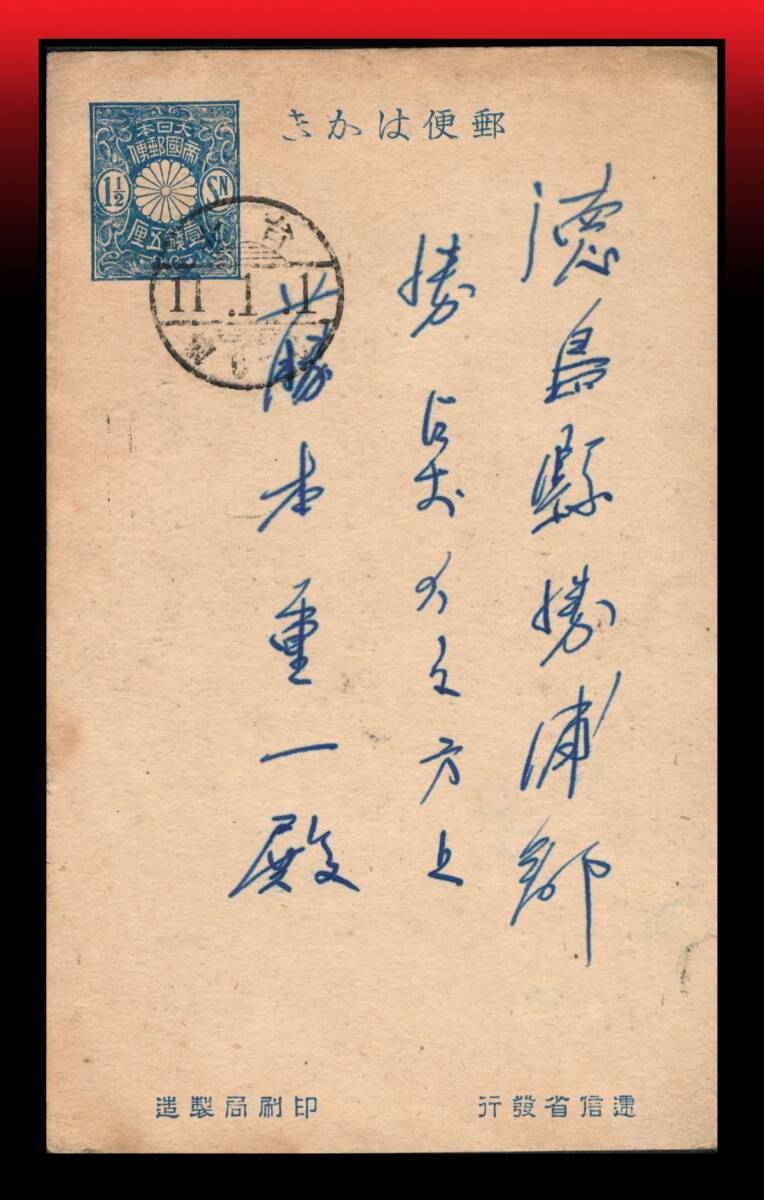 郵便はかき
大日本
帝國郵便
1½ SN
壹錢五厘
台
11.1.1
徳島縣勝浦郡
勝占村大字方上
藤本重一殿
逓信省發行
印刷局製造